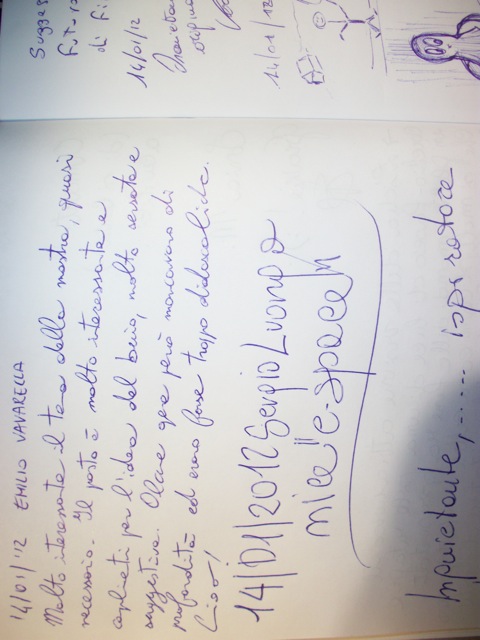 14/01/'12 EMILIO VAVARELLA
Molto interessante il tema della mostra, quasi
necessario. Il posto è molto interessante e
per l'idea del buio, molto sensata e
suggestiva. Alcune opere però mancavano di
profondità ed erano forse troppo didascaliche.
Ciao!
14/01/2012 Sergio Luongo
nice "e-space"
Inquietante,.....
Sugges
di fi
14/01/12
14/01/12